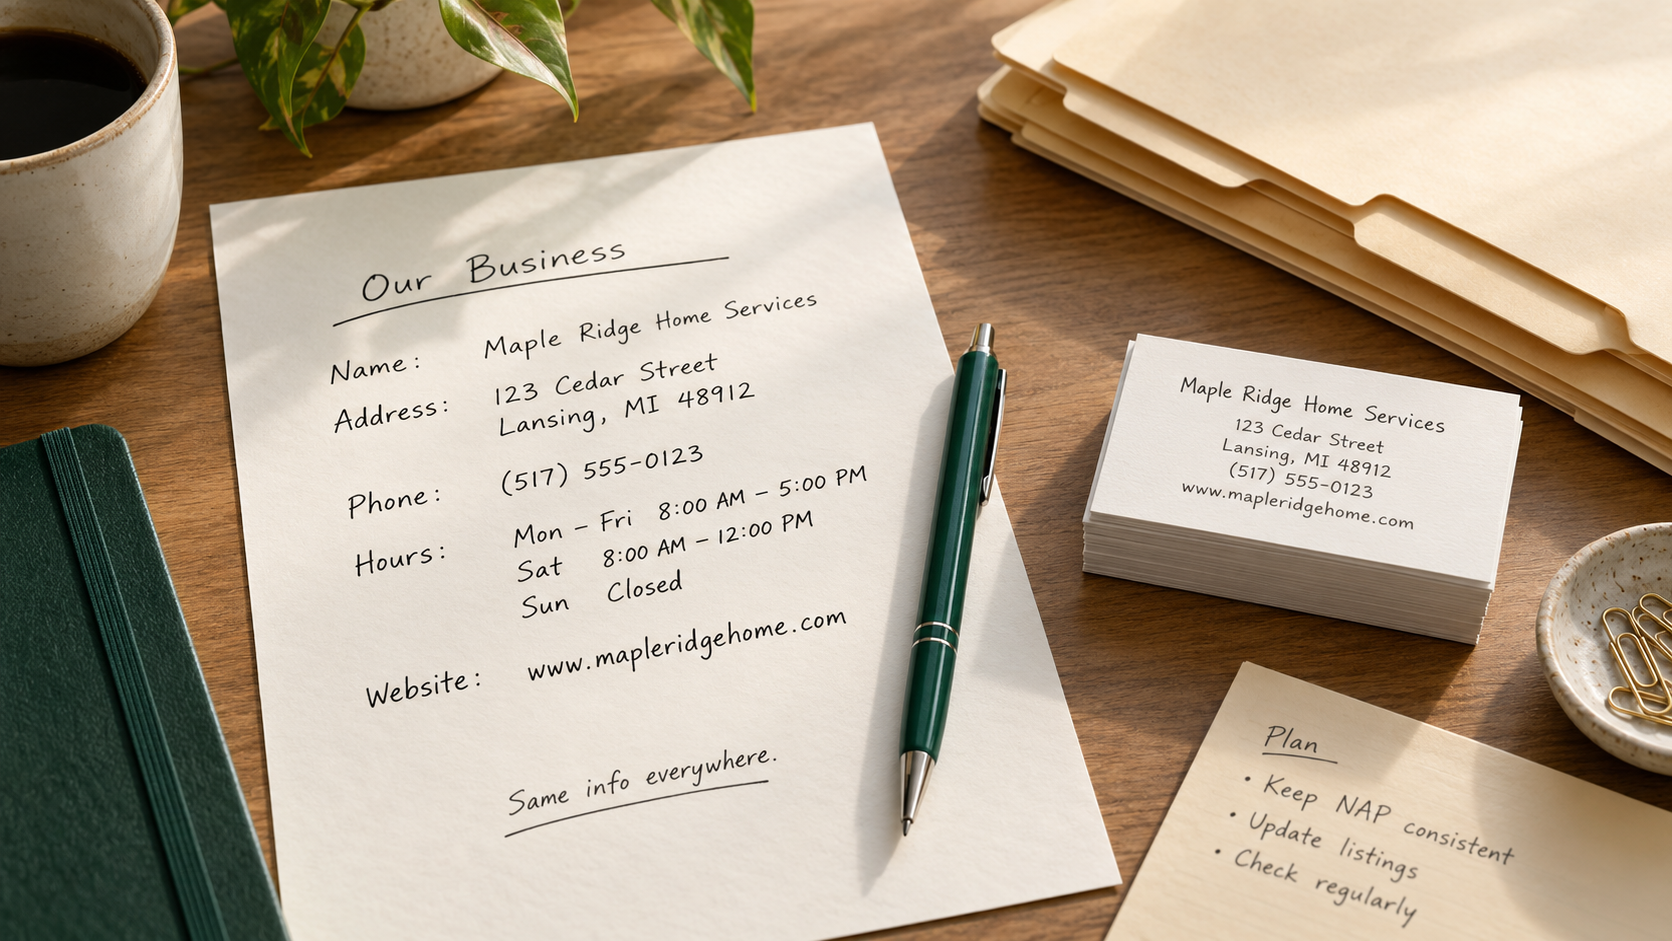 Our Business
Name: Maple Ridge Home Services
Address: 123 Cedar Street
Lansing, MI 48912
Phone: (517) 555-0123
Hours: Mon – Fri 8:00 AM – 5:00 PM
Sat 8:00 AM – 12:00 PM
Sun Closed
Website: www.mapleridgehome.com
Same info everywhere.
Maple Ridge Home Services
123 Cedar Street
Lansing, MI 48912
(517) 555-0123
www.mapleridgehome.com
Plan
• Keep NAP consistent
• Update listings
• Check regularly